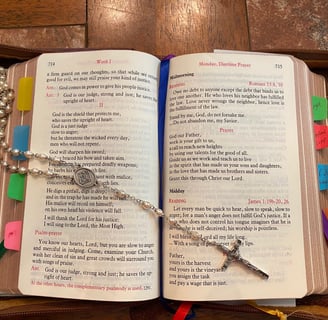 714 Week I
A firm guard on our thoughts, so that while we
good for evil, we may still praise your kind of justice.
Ant. 2 God comes in power to give his people justice.
Ant. 3 God is our judge, strong and just; he saves the
upright of heart.
II
God is the shield that protects me,
who saves the upright of heart.
God is a just judge
slow to anger;
but he threatens the wicked every day,
men who will not repent.
God will sharpen his sword;
he has braced his bow and taken aim.
he has prepared deadly weapons;
who is pregnant with malice,
conceives
He digs a pitfall, digs it deep;
and in the trap he has made he will
His malice will recoil on himself;
on his own head his violence will fall.
I will thank the Lord for his justice;
I will sing to the Lord, the Most High.
Psalm-prayer
You know our hearts, Lord, but you are slow to anger
and merciful in judging. Come, examine your Church,
wash her clean of sin and great crowds will surround you
with songs of praise.
Ant. God is our judge, strong and just; he saves the up-
right of heart.
At the other hours, the complementary psalmody is used, 1191.
Monday, Daytime Prayer 715
Midmorning
READING Romans 13:8, 10
Owe no debt to anyone except the debt that binds us to
love one another. He who loves his neighbor has fulfilled
the law. Love never wrongs the neighbor, hence love is
the fulfillment of the law.
Stand by me, God, do not forsake me.
— Do not abandon me, my Savior.
Prayer
God our Father,
work is your gift to us,
a call to reach new heights
by using our talents for the good of all.
Guide us as we work and teach us to live
in the spirit that has made us your sons and daughters,
in the love that has made us brothers and sisters.
Grant this through Christ our Lord.
Midday
READING James 1:19b-20, 26
Let every man be quick to hear, slow to speak, slow to
anger; for a man's anger does not fulfill God's justice. If a
man who does not control his tongue imagines that he is
he is self-deceived; his worship is pointless.
I will bless the Lord all my life long,
— With a song of praise
Father,
yours is the harvest
and yours is the vineyard:
you assign the task
and pay a wage that is just.